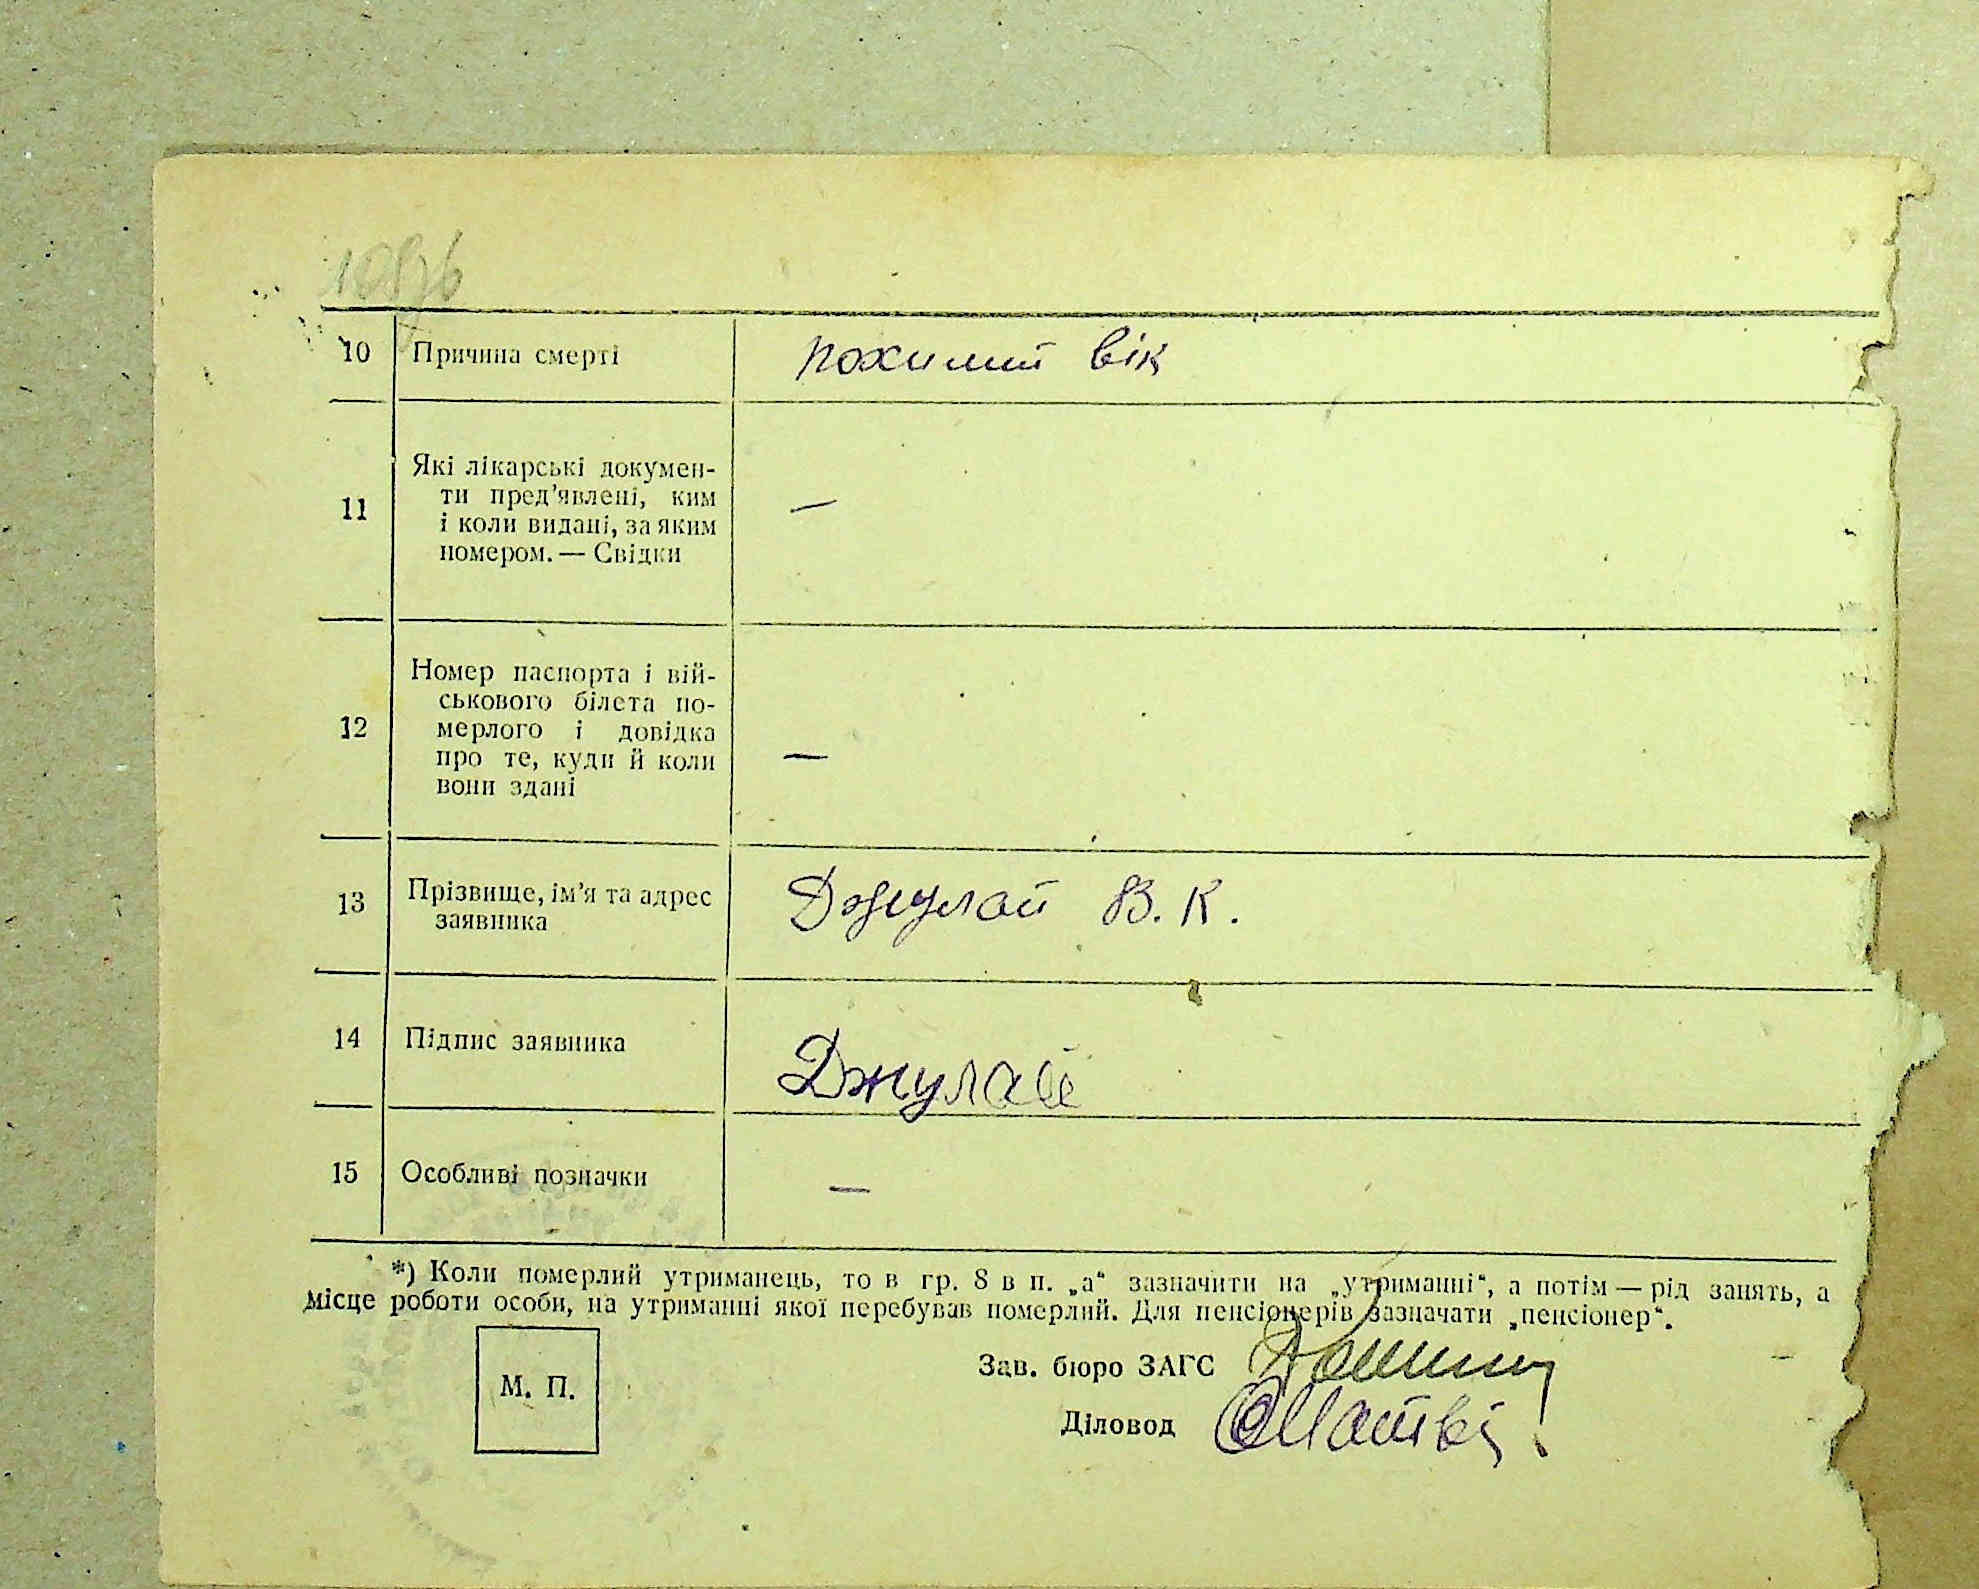 10 Причина смерті похилий вік
11 Які лікарські докумен-
ти пред'явлені, ким
і коли видані, за яким
номером. — Свідки —
12 Номер паспорта і вій-
ськового білета по-
мерлого і довідка
про те, куди й коли
вони здані —
13 Прізвище, ім'я та адрес
заявника Джулай В. К.
14 Підпис заявника Джулай
15 Особливі позначки —
*) Коли померлий утриманець, то в гр. 8 в п. „а“ зазначити на „утриманні“, а потім — рід занять, а
місце роботи особи, на утриманні якої перебував померлий. Для пенсіонерів зазначати „пенсіонер“.
М. П.
Зав. бюро ЗАГС
Діловод